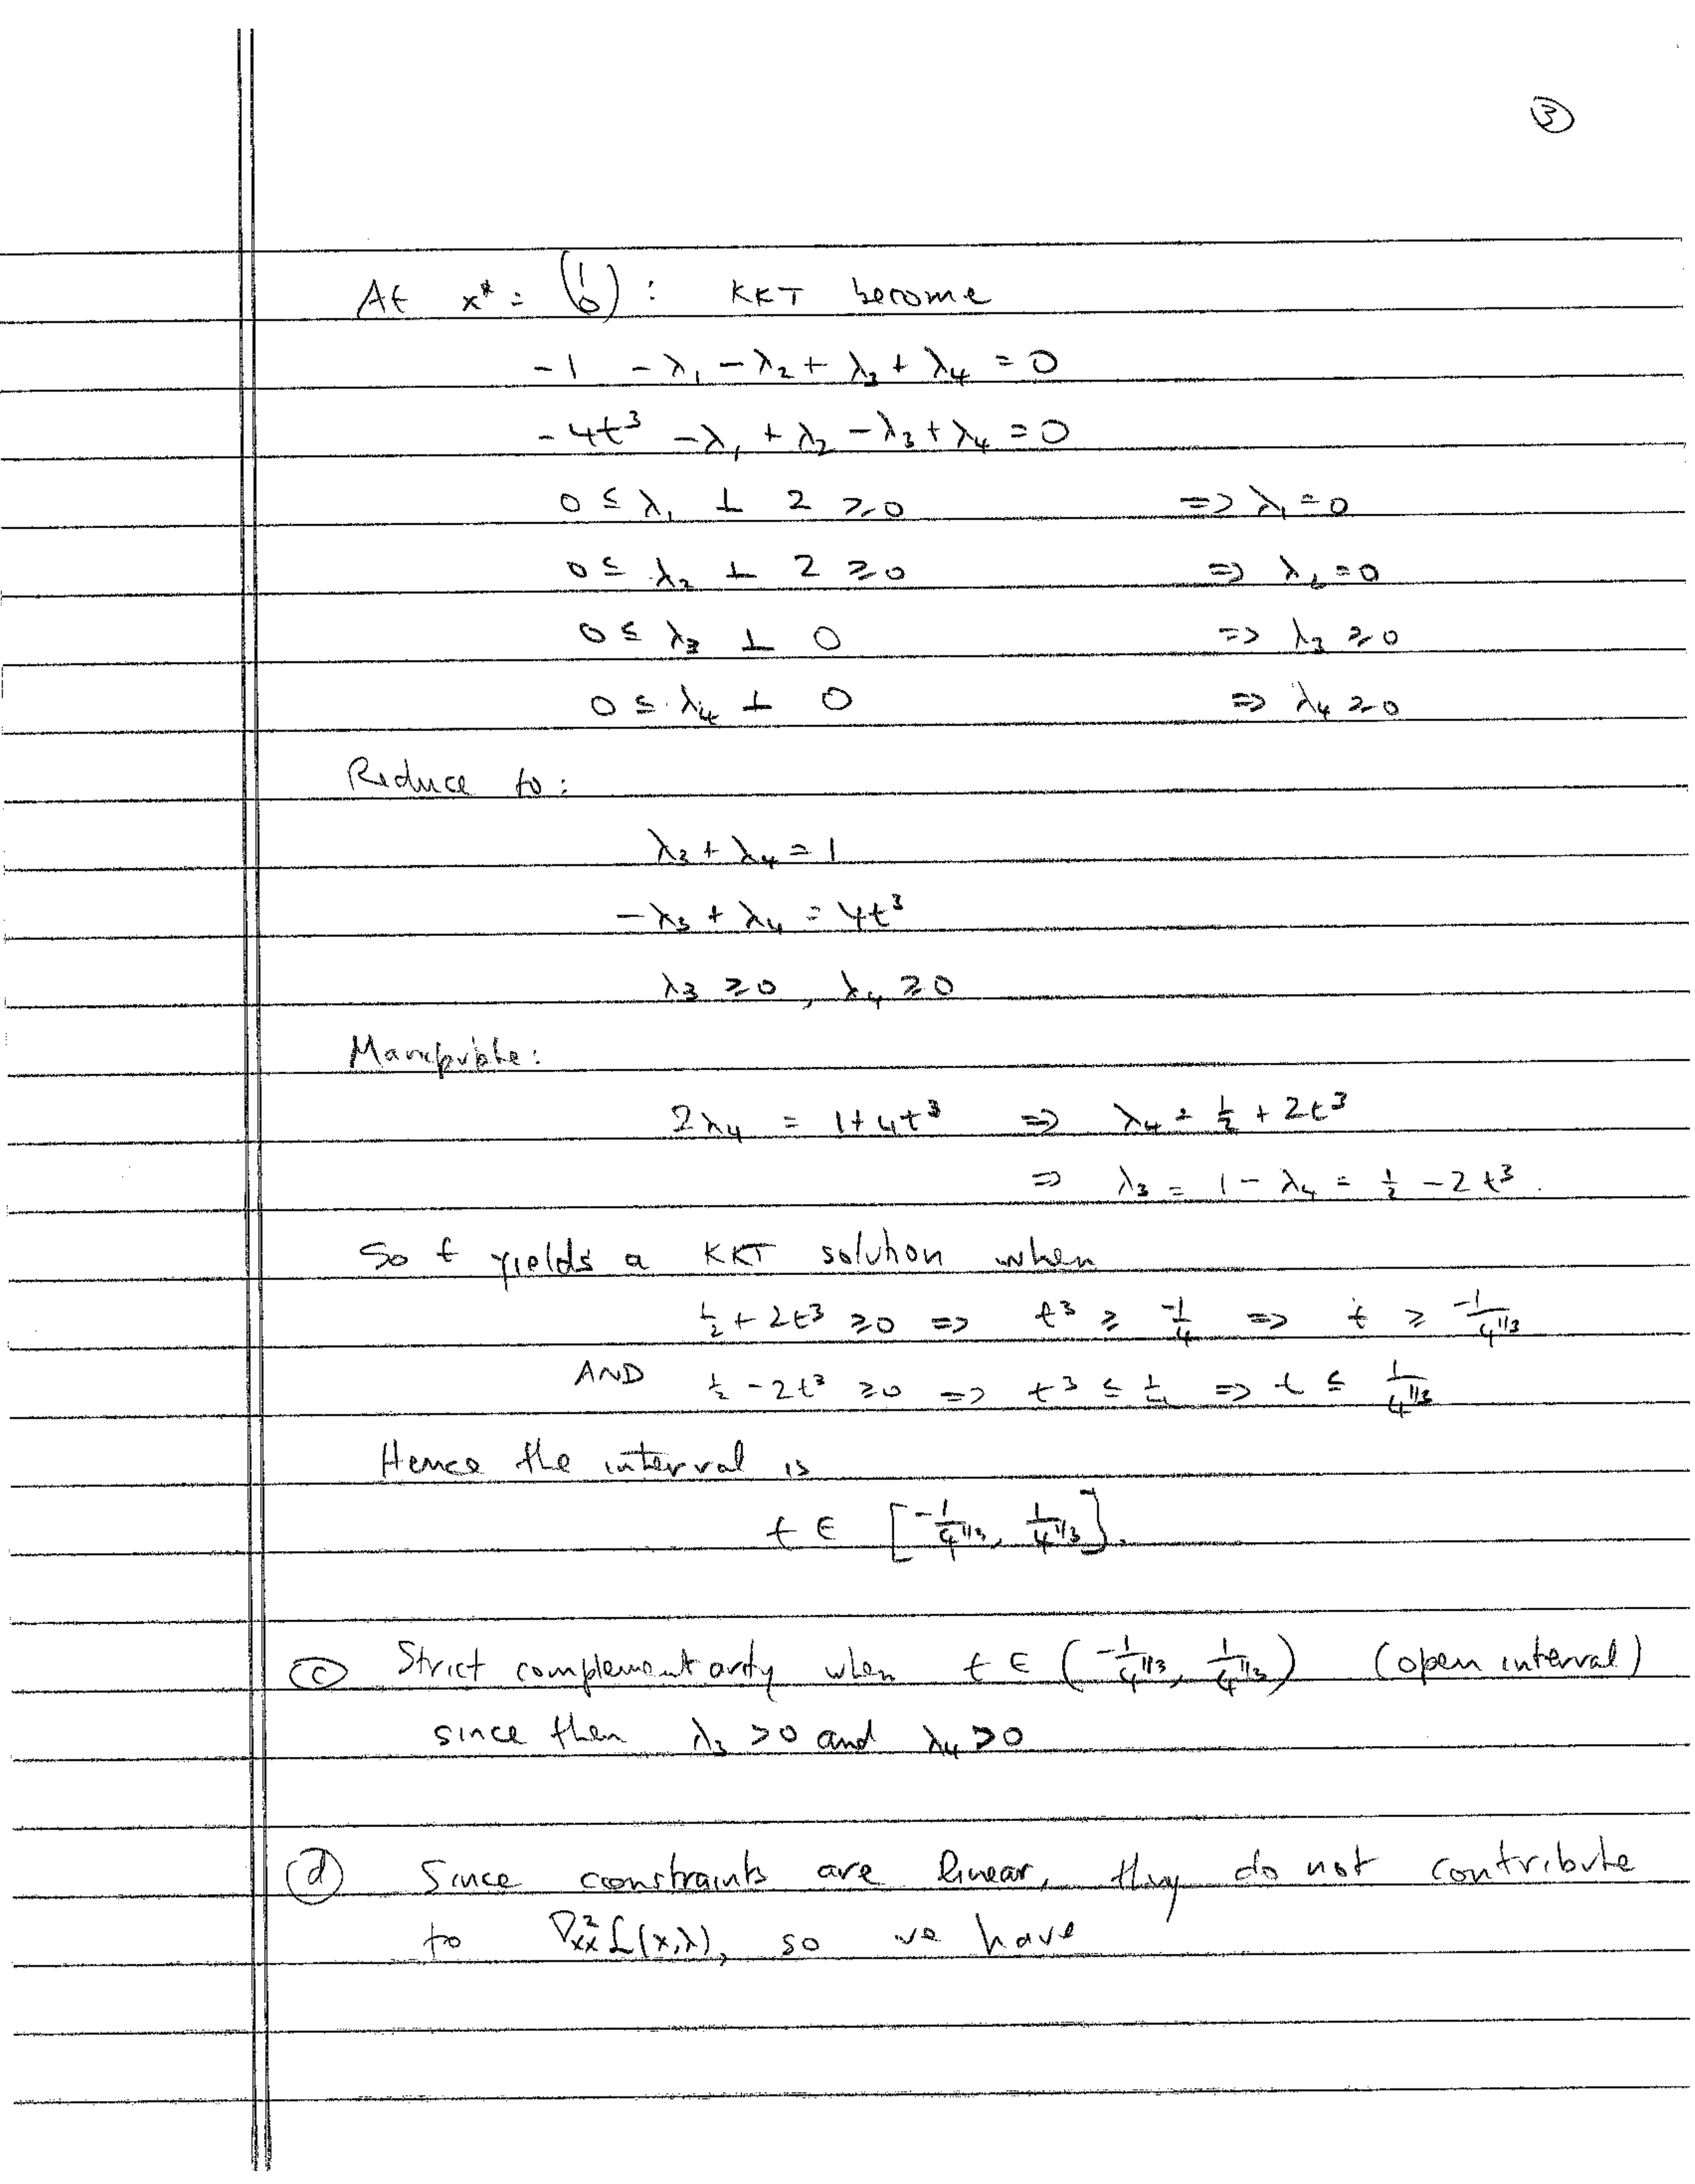 ③
At x* = (1 0) : KKT become
-1 - λ₁ - λ₂ + λ₃ + λ₄ = 0
-4t³ - λ₁ + λ₂ - λ₃ + λ₄ = 0
0 ≤ λ₁ ⊥ 2 ≥ 0 => λ₁ = 0
0 ≤ λ₂ ⊥ 2 ≥ 0 => λ₂ = 0
0 ≤ λ₃ ⊥ 0 => λ₃ ≥ 0
0 ≤ λ₄ ⊥ 0 => λ₄ ≥ 0
Reduce to:
λ₃ + λ₄ = 1
-λ₃ + λ₄ = 4t³
λ₃ ≥ 0, λ₄ ≥ 0
Manipulate:
2λ₄ = 1+4t³ => λ₄ = 1/2 + 2t³
=> λ₃ = 1 - λ₄ = 1/2 - 2t³.
So t yields a KKT solution when
1/2 + 2t³ ≥ 0 => t³ ≥ -1/4 => t ≥ -1/4^{1/3}
AND 1/2 - 2t³ ≥ 0 => t³ ≤ 1/4 => t ≤ 1/4^{1/3}
Hence the interval is
t ∈ [-1/4^{1/3}, 1/4^{1/3}].
ⓒ Strict complementarity when t ∈ (-1/4^{1/3}, 1/4^{1/3}) (open interval)
since then λ₃ > 0 and λ₄ > 0
ⓓ Since constraints are linear, they do not contribute
to ∇²ₓₓ L(x,λ), so we have